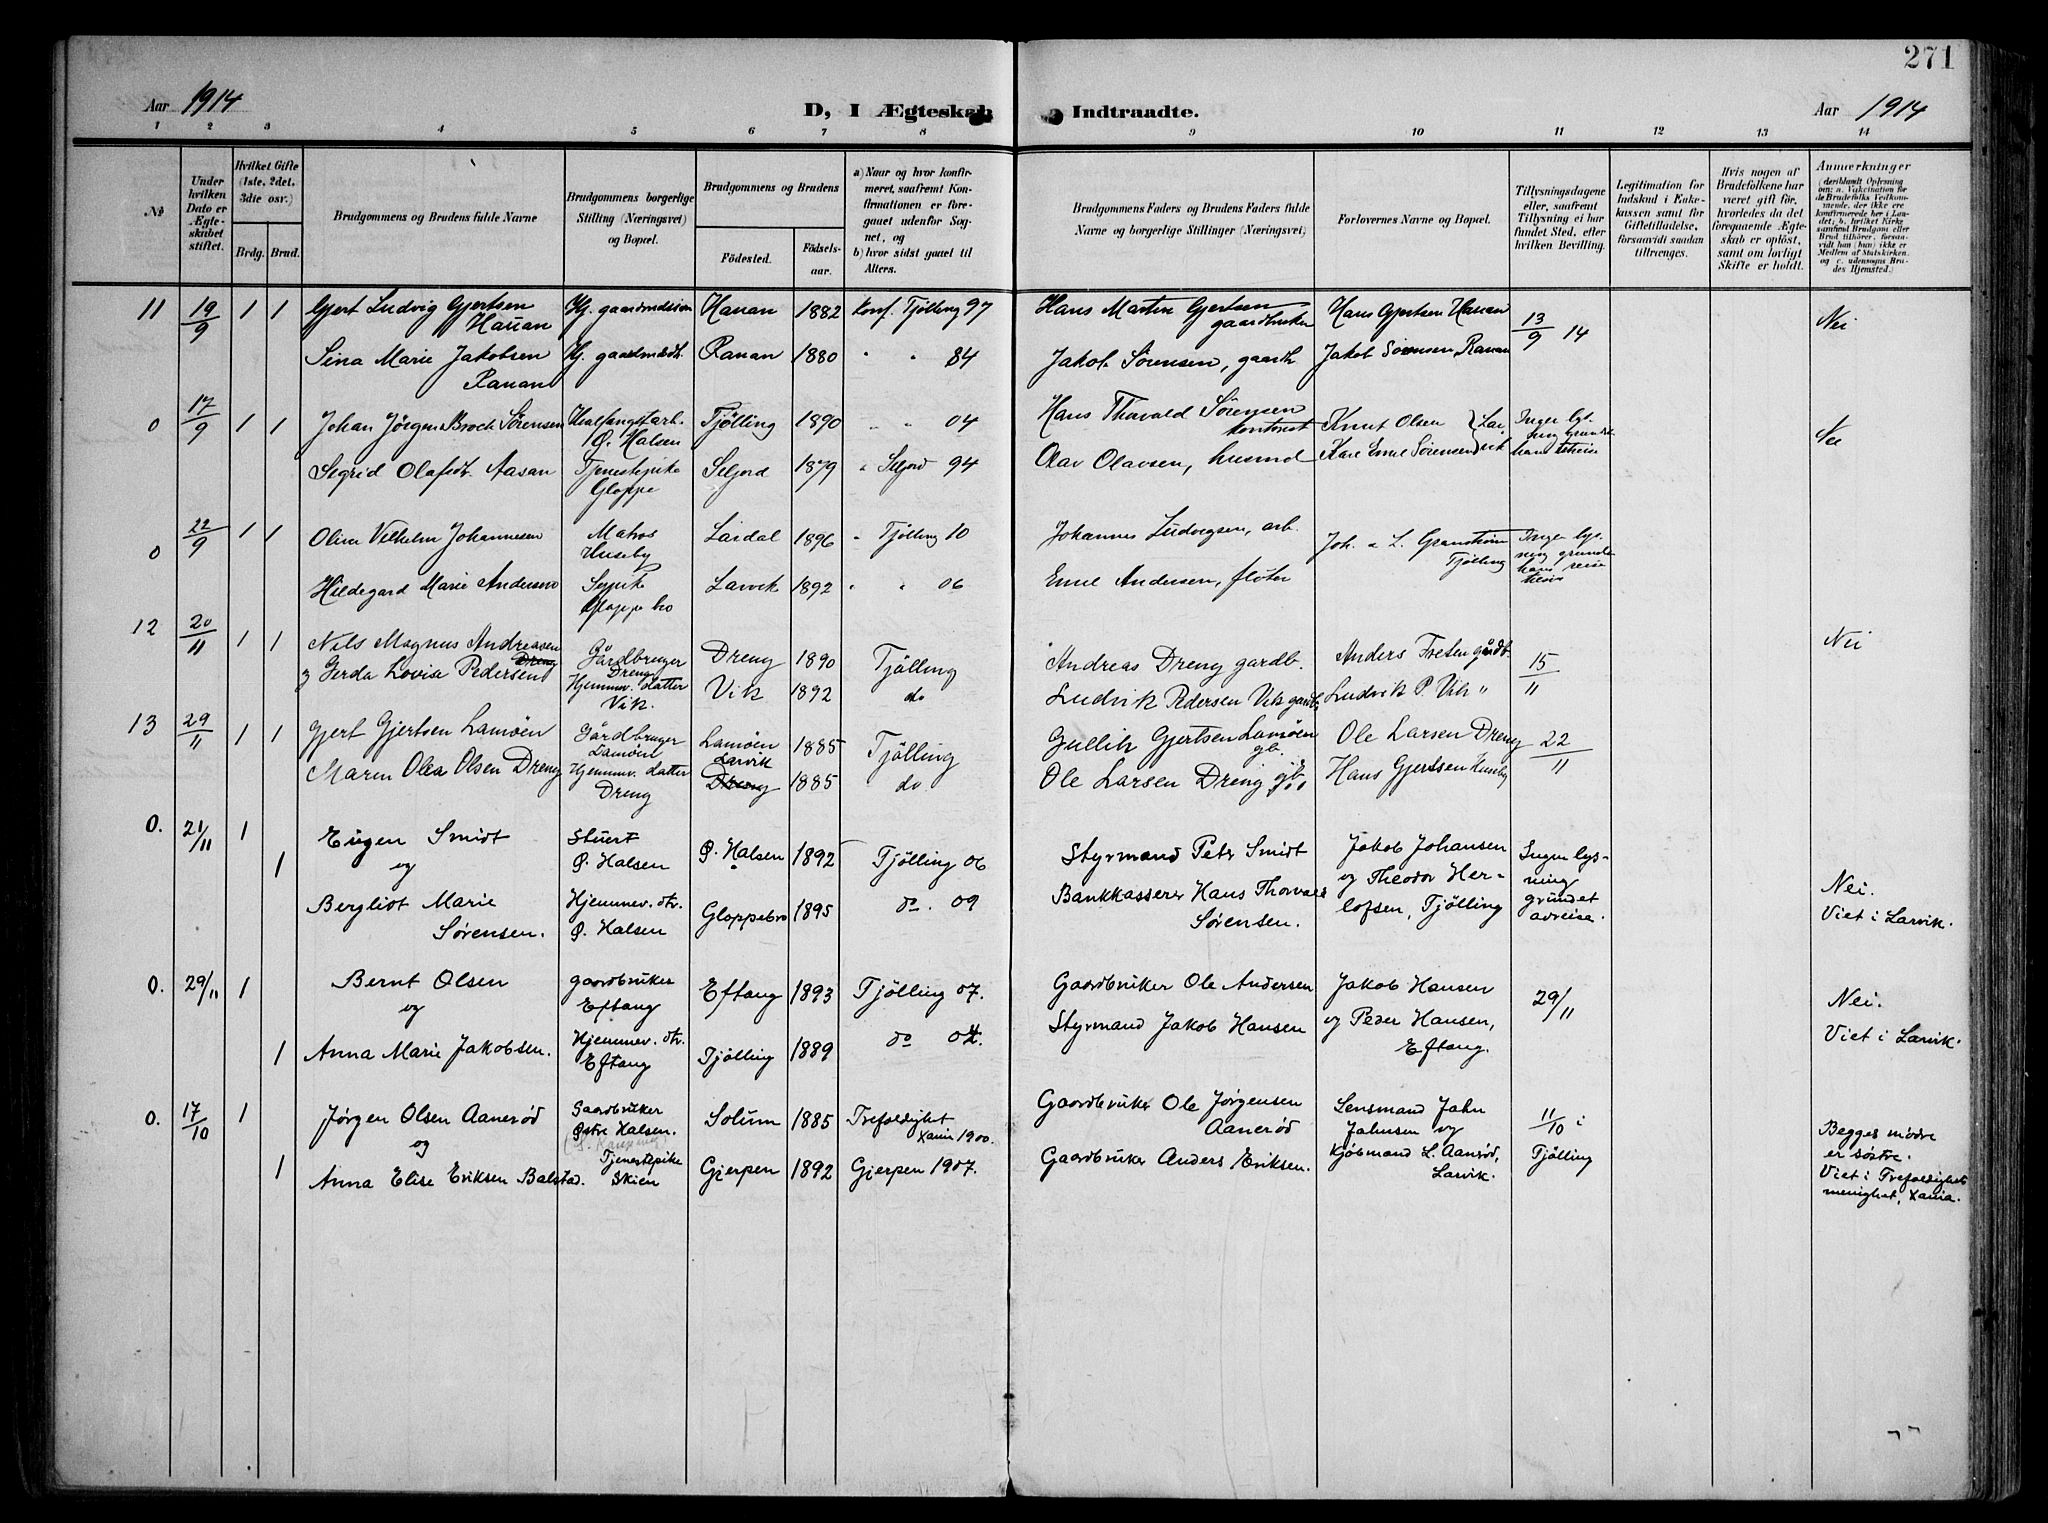 271
Aar 1914
D, I Ægteskab Indtraadte.
Aar 1914
1 2 3 4 5 6 7 8 9 10 11 12 13 14
No.
Under hvilken Dato er Ægteskabet stiftet.
Hvilket Gifte (1ste, 2det, 3die osv.)
Brdg. Brud.
Brudgommens og Brudens fulde Navne
Brudgommens borgerlige Stilling (Næringsvei) og Bopæl.
Brudgommens og Brudens
Fødested.
Fødselsaar.
a) Naar og hvor konfirmeret, saafremt Konfirmationen er foregaaet udenfor Sognet, og
b) hvor sidst gaaet til Alters.
Brudgommens Faders og Brudens Faders fulde Navne og borgerlige Stillinger (Næringsvei)
Forlovernes Navne og Bopæl.
Tillysningsdagene eller, saafremt Tillysning ei har fundet Sted, efter hvilken Bevilling.
Legitimation for Indskud i Enkekassen samt for Giftetilladelse, forsaavidt saadan tiltrænges.
Hvis nogen af Brudefolkene har været gift før, hvorledes da det foregaaende Ægteskab er opløst, samt om lovligt Skifte er holdt.
Anmærkninger
(deriblandt Oplysning om: a. Vakcination for de Brudefolks Vedkommende, der ikke ere konfirmerede her i Landet; b. hvilket Kirkesamfund Brudgom eller Brud tilhører, forsaavidt han (hun) ikke er Medlem af Statskirken, og c. udensogns Brudes Hjemsted.)
11 19/9 1 1 Gjert Ludvig Gjertsen Hauan Hj. gaardmdssøn Hauan 1882 Konf. Tjølling 97 Hans Martin Gjertsen gaardbruker Hans Gjertsen Hauan 13/9 14 Nei
Sina Marie Jakobsen Ranan Hj. gaardmdsdt. Ranan 1880 " " 84 Jakob Sørensen, gaardb Jakob Sørensen, Ranan
0 17/9 1 1 Johan Jörgen Broch Sörensen Hvalfangstarb. Ø. Halsen Tjölling 1890 " " 04 Hans Thorvald Sörensen kontorist Knut Olsen Larvik Ingen lysning Nei
Sigrid Olafsdt. Aasan Tjenestepike Gloppe Seljord 1879 " Seljord 94 Olav Olavsen, husmd Kare Emil Sørensen
0 22/9 1 1 Olim Vilhelm Johannesen Matros Huseby Lardal 1896 " Tjølling 10 Johannes Ludvigsen, arb. Joh. Tjølling Ingen lysning grundet hans reise
Hildegard Marie Andersen Sypike Gloppe bro Larvik 1892 " " 06 Emil Andersen, fløter
12 20/11 1 1 Nils Magnus Andreasen Dreng Gårdbruger Dreng Dreng 1890 Tjölling Andreas Dreng gardb. Anders Freten gårdb. 15/11 Nei
og Gerda Lovise Pedersen Hjemmev. datter Vik. Vik 1892 do Ludvik Pedersen Vik gardb. Ludvik P. Vik "
13 29/11 1 1 Gjert Gjertsen Lamöen Gårdbruger Lamöen Lamöen 1885 Tjölling Gullik Gjertsen Lamöen gb. Ole Larsen Dreng 22/11
Maren Olea Olsen Dreng Hjemmev. datter Dreng Larvik Dreng 1885 do. Ole Larsen Dreng Hans Gjertsen Huseby
0. 21/11 1 Eugen Smidt Stuert Ø. Halsen Ø. Halsen 1892 Tjølling 06 Styrmand Peter Smidt Jakob Johansen Ingen lysning grundet avreise.
og
1 Bergliot Marie Sørensen. Hjemmev. dtr. Ø. Halsen Gloppebro 1895 do. 09 Bankkasserer Hans Thorvald Sørensen. og Theodor Herlofsen, Tjølling Nei. Viet i Larvik.
0. 29/11 1 Bernt Olsen gaardbruker Eftang Eftang 1893 Tjølling 07. Gaardbruker Ole Andersen Jakob Hansen 29/11 Nei.
og
1 Anna Marie Jakobsen. Hjemmev. dtr. Eftang Tjølling 1889 do 04. Styrmand Jakob Hansen og Peder Hansen, Eftang. Viet i Larvik.
0. 17/10 1 Jørgen Olsen Aanerød Gaardbruker Østre Halsen. Solum 1885 Trefoldighet Xania 1900. Gaardbruker Ole Jørgensen Aanerød Lensmand Jahn Jahnsen og 11/10 i Tjølling
og
1 Anna Elise Eriksen Balstad. Tjenestepike Skien Gjerpen 1892 Gjerpen 1907. Gaardbruker Anders Eriksen. Kjøbmand L. Aanrød, Larvik. Begges mødre er søstre. Viet i Trefoldighets menighet, Xania.